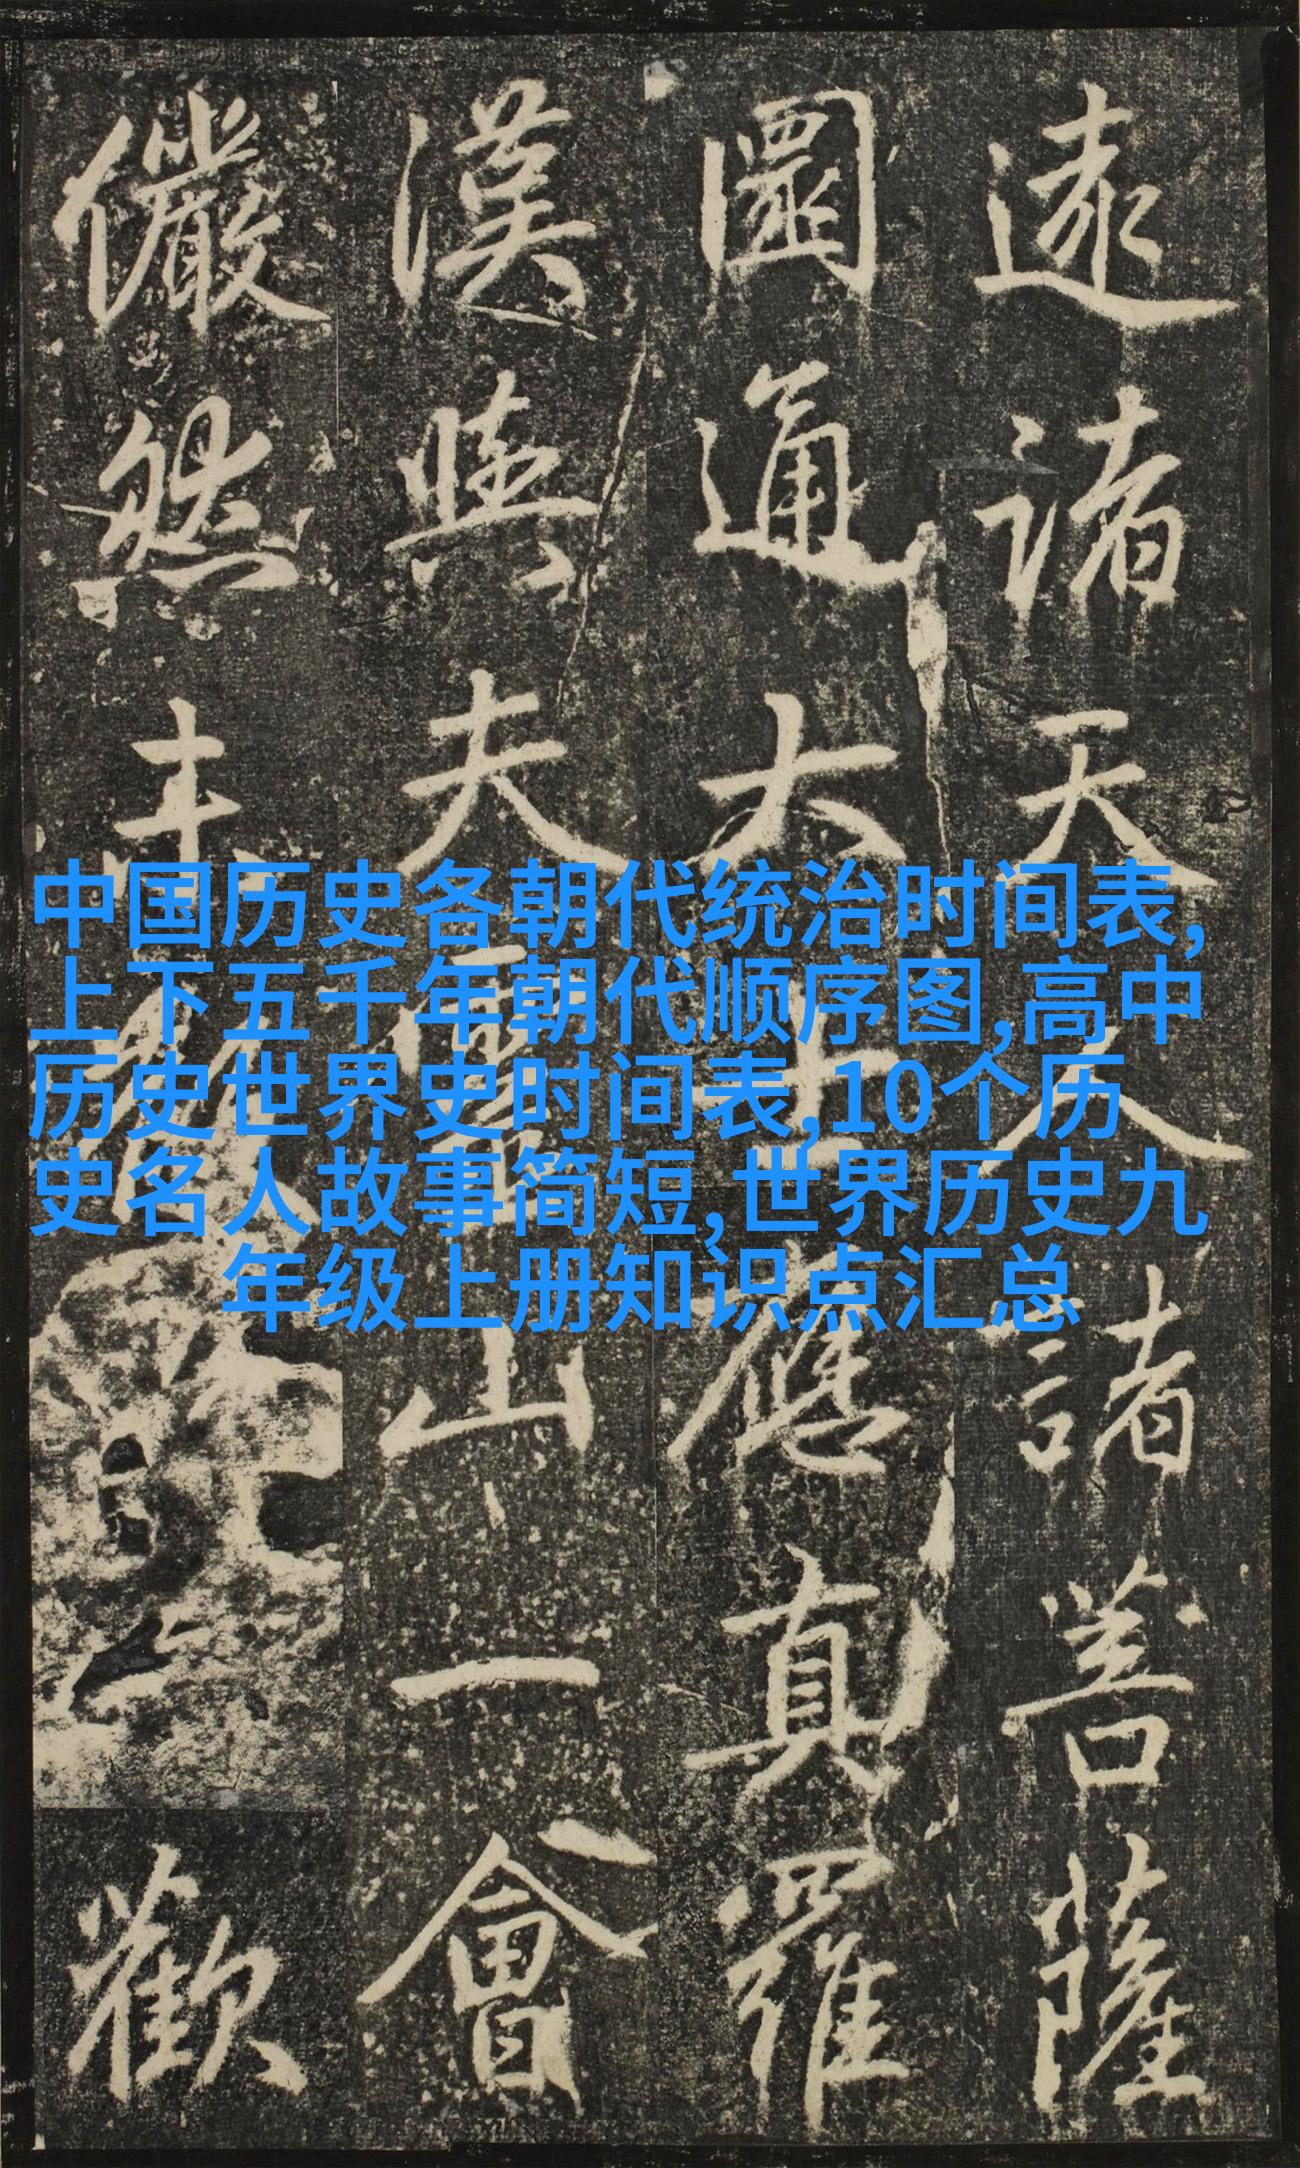 遠諸天人諸菩薩
通大士應真羅
漢與夫靈山一會
儼然未散歡
中国历史各朝代统治时间表,
上下五千年朝代顺序图,高中
历史世界史时间表,10个历
史名人故事简短,世界历史九
年级上册知识点汇总